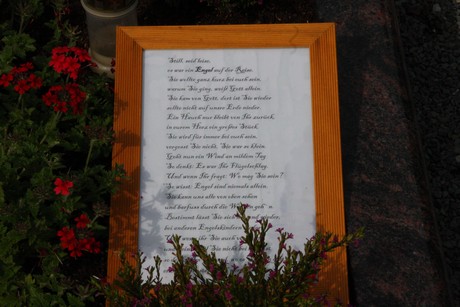 Still, seid leise,
es war ein Engel auf der Reise.
Sie wollte ganz kurz bei euch sein,
warum Sie ging, weiß Gott allein.
Sie kam von Gott, dort ist Sie wieder
sollte nicht auf unsre Erde nieder.
Ein Hauch nur bleibt von Ihr zurück,
in eurem Herz ein großes Stück.
Sie wird für immer bei euch sein,
vergesst Sie nicht, Sie war so klein.
Geht nun ein Wind an mildem Tag,
So denkt: Es war Ihr Flügelschlag.
Und wenn Ihr fragt: Wo mag Sie sein?
So wisst: Engel sind niemals allein.
Sie kann nun alle von oben sehen
und barfuss durch die Wolken geh'n
Bestimmt lässt Sie sich hin und wieder
bei anderen Engelskindern
wenn ihr Sie auch